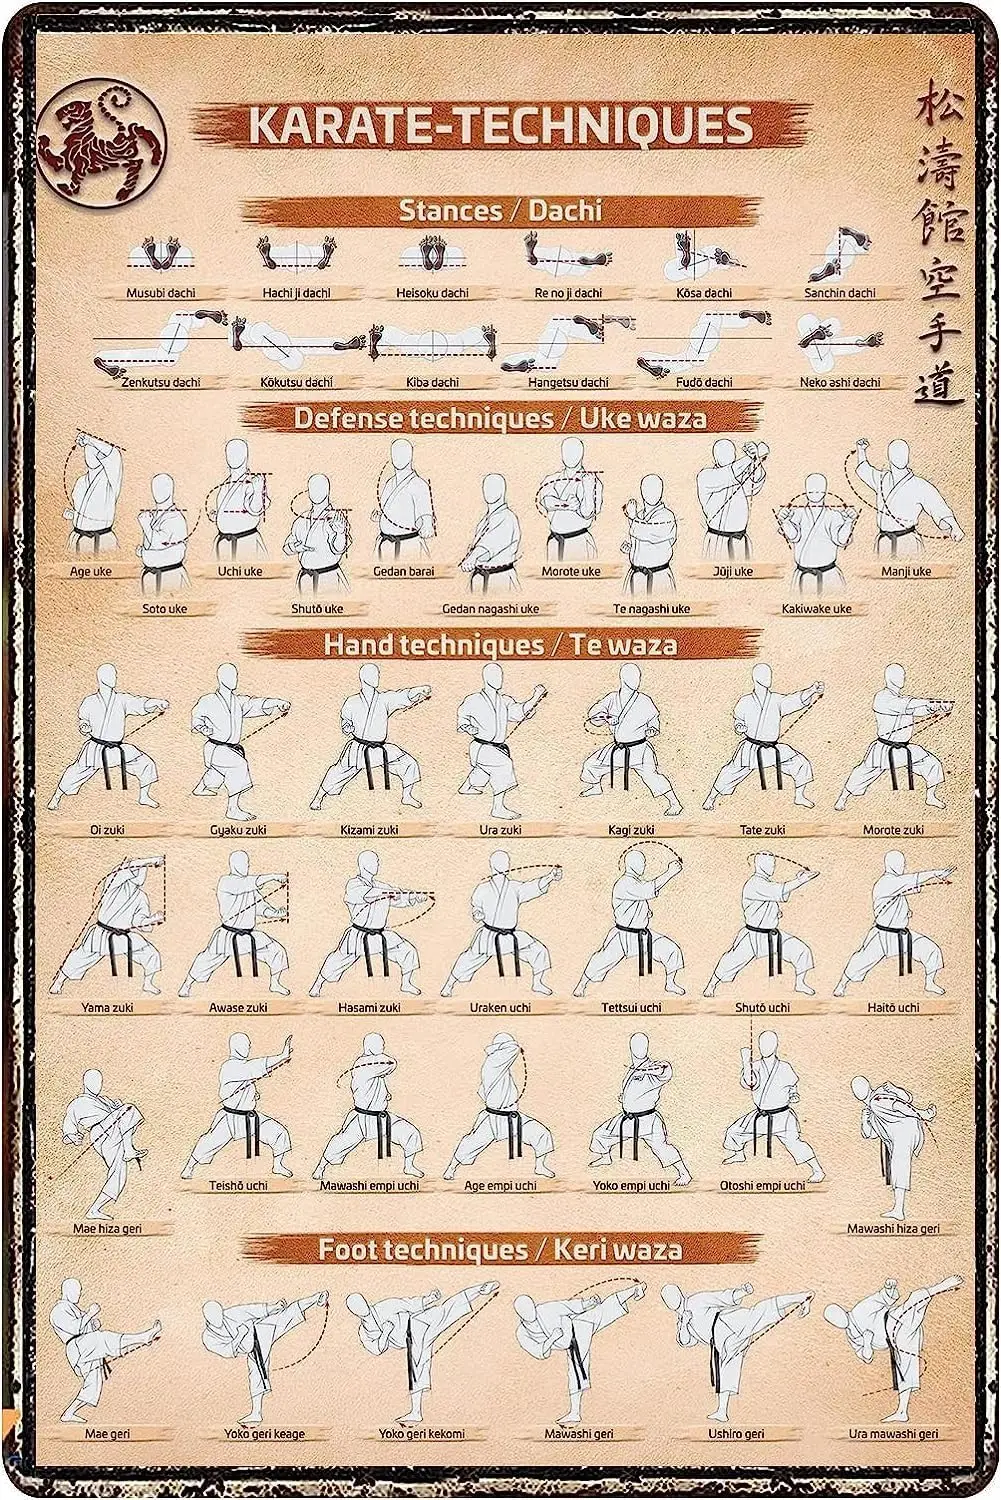 KARATE-TECHNIQUES
松濤館空手道
Stances / Dachi
Musubi dachi
Hachi ji dachi
Heisoku dachi
Re no ji dachi
Kōsa dachi
Sanchin dachi
Zenkutsu dachi
Kōkutsu dachi
Kiba dachi
Hangetsu dachi
Fudō dachi
Neko ashi dachi
Defense techniques / Uke waza
Age uke
Uchi uke
Gedan barai
Morote uke
Jūji uke
Manji uke
Soto uke
Shutō uke
Gedan nagashi uke
Te nagashi uke
Kakiwake uke
Hand techniques / Te waza
Oi zuki
Gyaku zuki
Kizami zuki
Ura zuki
Kagi zuki
Tate zuki
Morote zuki
Yama zuki
Awase zuki
Hasami zuki
Uraken uchi
Tettsui uchi
Shutō uchi
Haitō uchi
Teishō uchi
Mawashi empi uchi
Age empi uchi
Yoko empi uchi
Otoshi empi uchi
Mae hiza geri
Mawashi hiza geri
Foot techniques / Keri waza
Mae geri
Yoko geri keage
Yoko geri kekomi
Mawashi geri
Ushiro geri
Ura mawashi geri